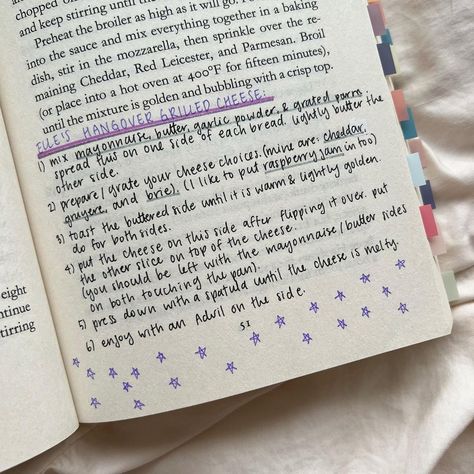 chopped on
and keep stirring until th
Preheat the broiler as high as it will go.
into the sauce and mix everything together in a baking
dish, stir in the mozzarella, then sprinkle over the re-
maining Cheddar, Red Leicester, and Parmesan. Broil
(or place into a hot oven at 400°F for fifteen minutes),
until the mixture is golden and bubbling with a crisp top.
ELLE'S HANGOVER GRILLED CHEESE:
1) mix mayonnaise, butter, garlic powder, & grated parm
spread this on one side of each bread. lightly butter the
other side.
2) prepare/grate your cheese choices. (mine are: cheddar,
gruyere, and brie). (I like to put raspberry jam in too)
3) toast the buttered side until it is warm & lightly golden.
do for both sides.
4) put the cheese on this side after flipping it over. put
the other slice on top of the cheese.
(you should be left with the mayonnaise/butter sides
on both touching the pan).
5) press down with a spatula until the cheese is melty.
6) enjoy with an Advil on the side.
51
eight
ntinue
tirring